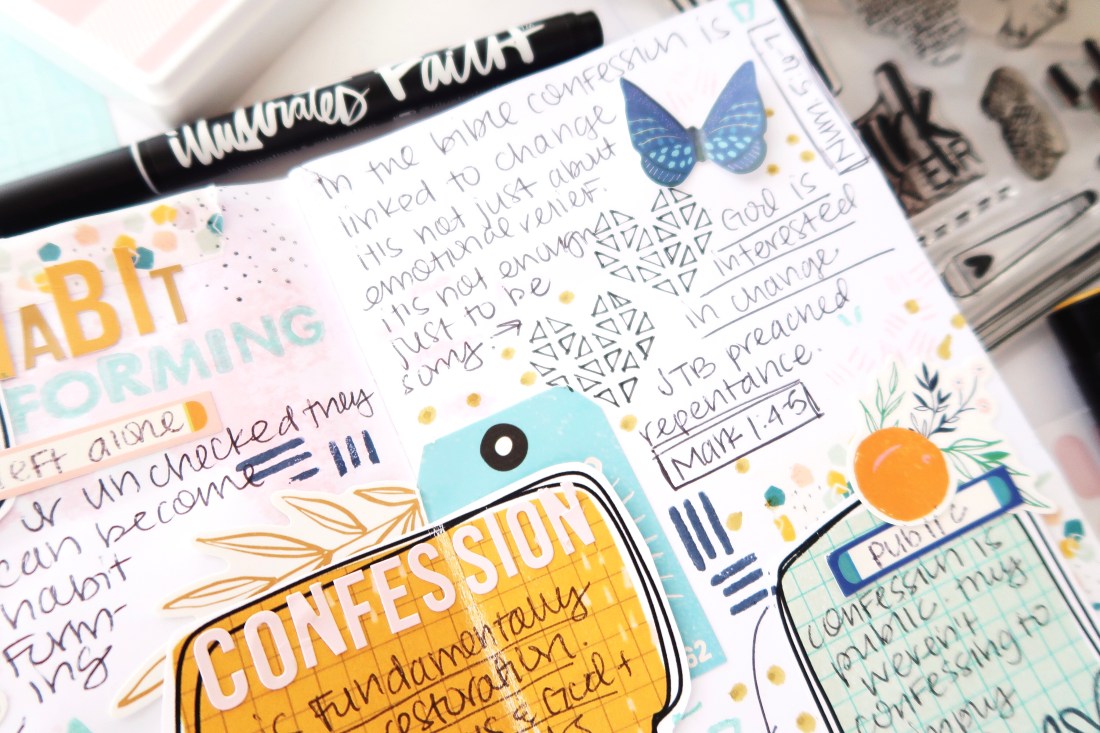 illustrated Faith
HABIT
FORMING
left alone
or unchecked they
can become
habit
form-
ing
In the bible confession is
linked to change
it's not just about
emotional relief.
it's not enough
just to be
sorry →
NUM 5:6-7
God is
interested
in change
JTB preached
repentance.
Mark 1:4-5
CONFESSION
is fundamentally
restoration.
& God +
62
public
confession is
public. they
weren't
confessing to